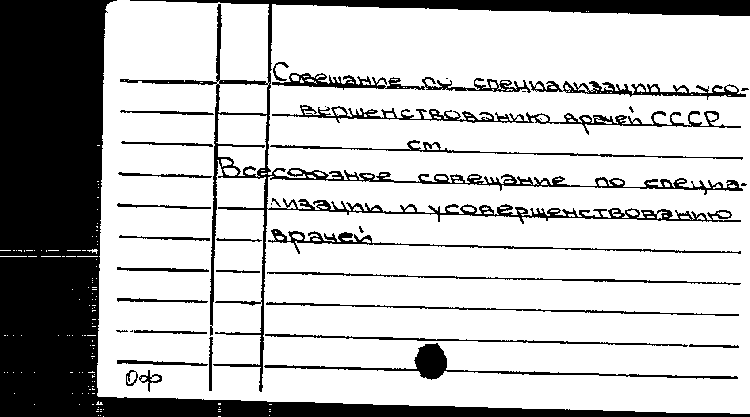 Совещание по специализации и усо-
вершенствованию врачей СССР
см.
Всесоюзное совещание по специа-
лизации и усовершенствованию
врачей
Оф